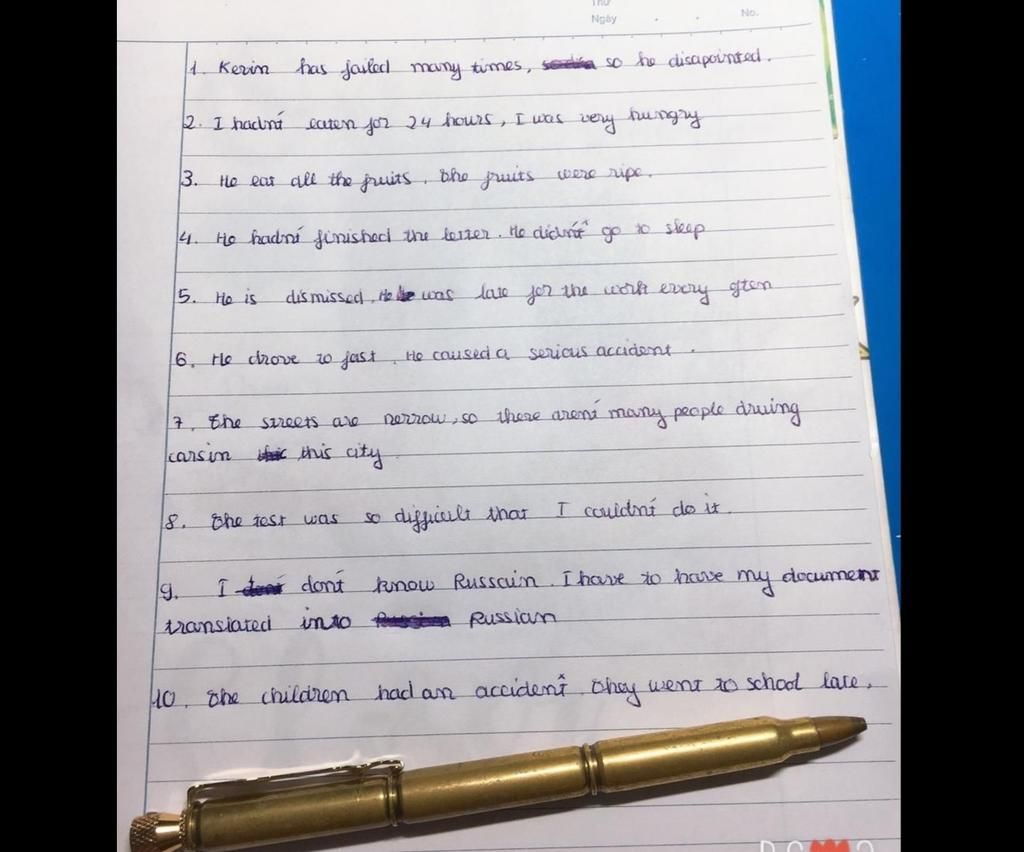 Thứ
Ngày . . No.
1. Kevin has failed many times, so he disapointed.
2. I hadn't eaten for 24 hours, I was very hungry
3. He eat all the fruits. The fruits were ripe.
4. He hadn't finished the letter. He didn't go to sleep
5. He is dismissed. He was late for the work every often
6. He drove to fast. He caused a serious accident.
7. The streets are nerrow, so there aren't many people druing
cars in this city
8. The test was so difficult that I couldn't do it.
9. I don't know Russain. I have to have my document
translated into Russian
10. The children had an accident. They went to school late.